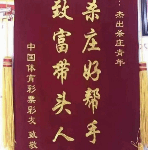 杰出杀庄青年
杀庄好帮手
致富带头人
中国体育彩票彩友 致敬